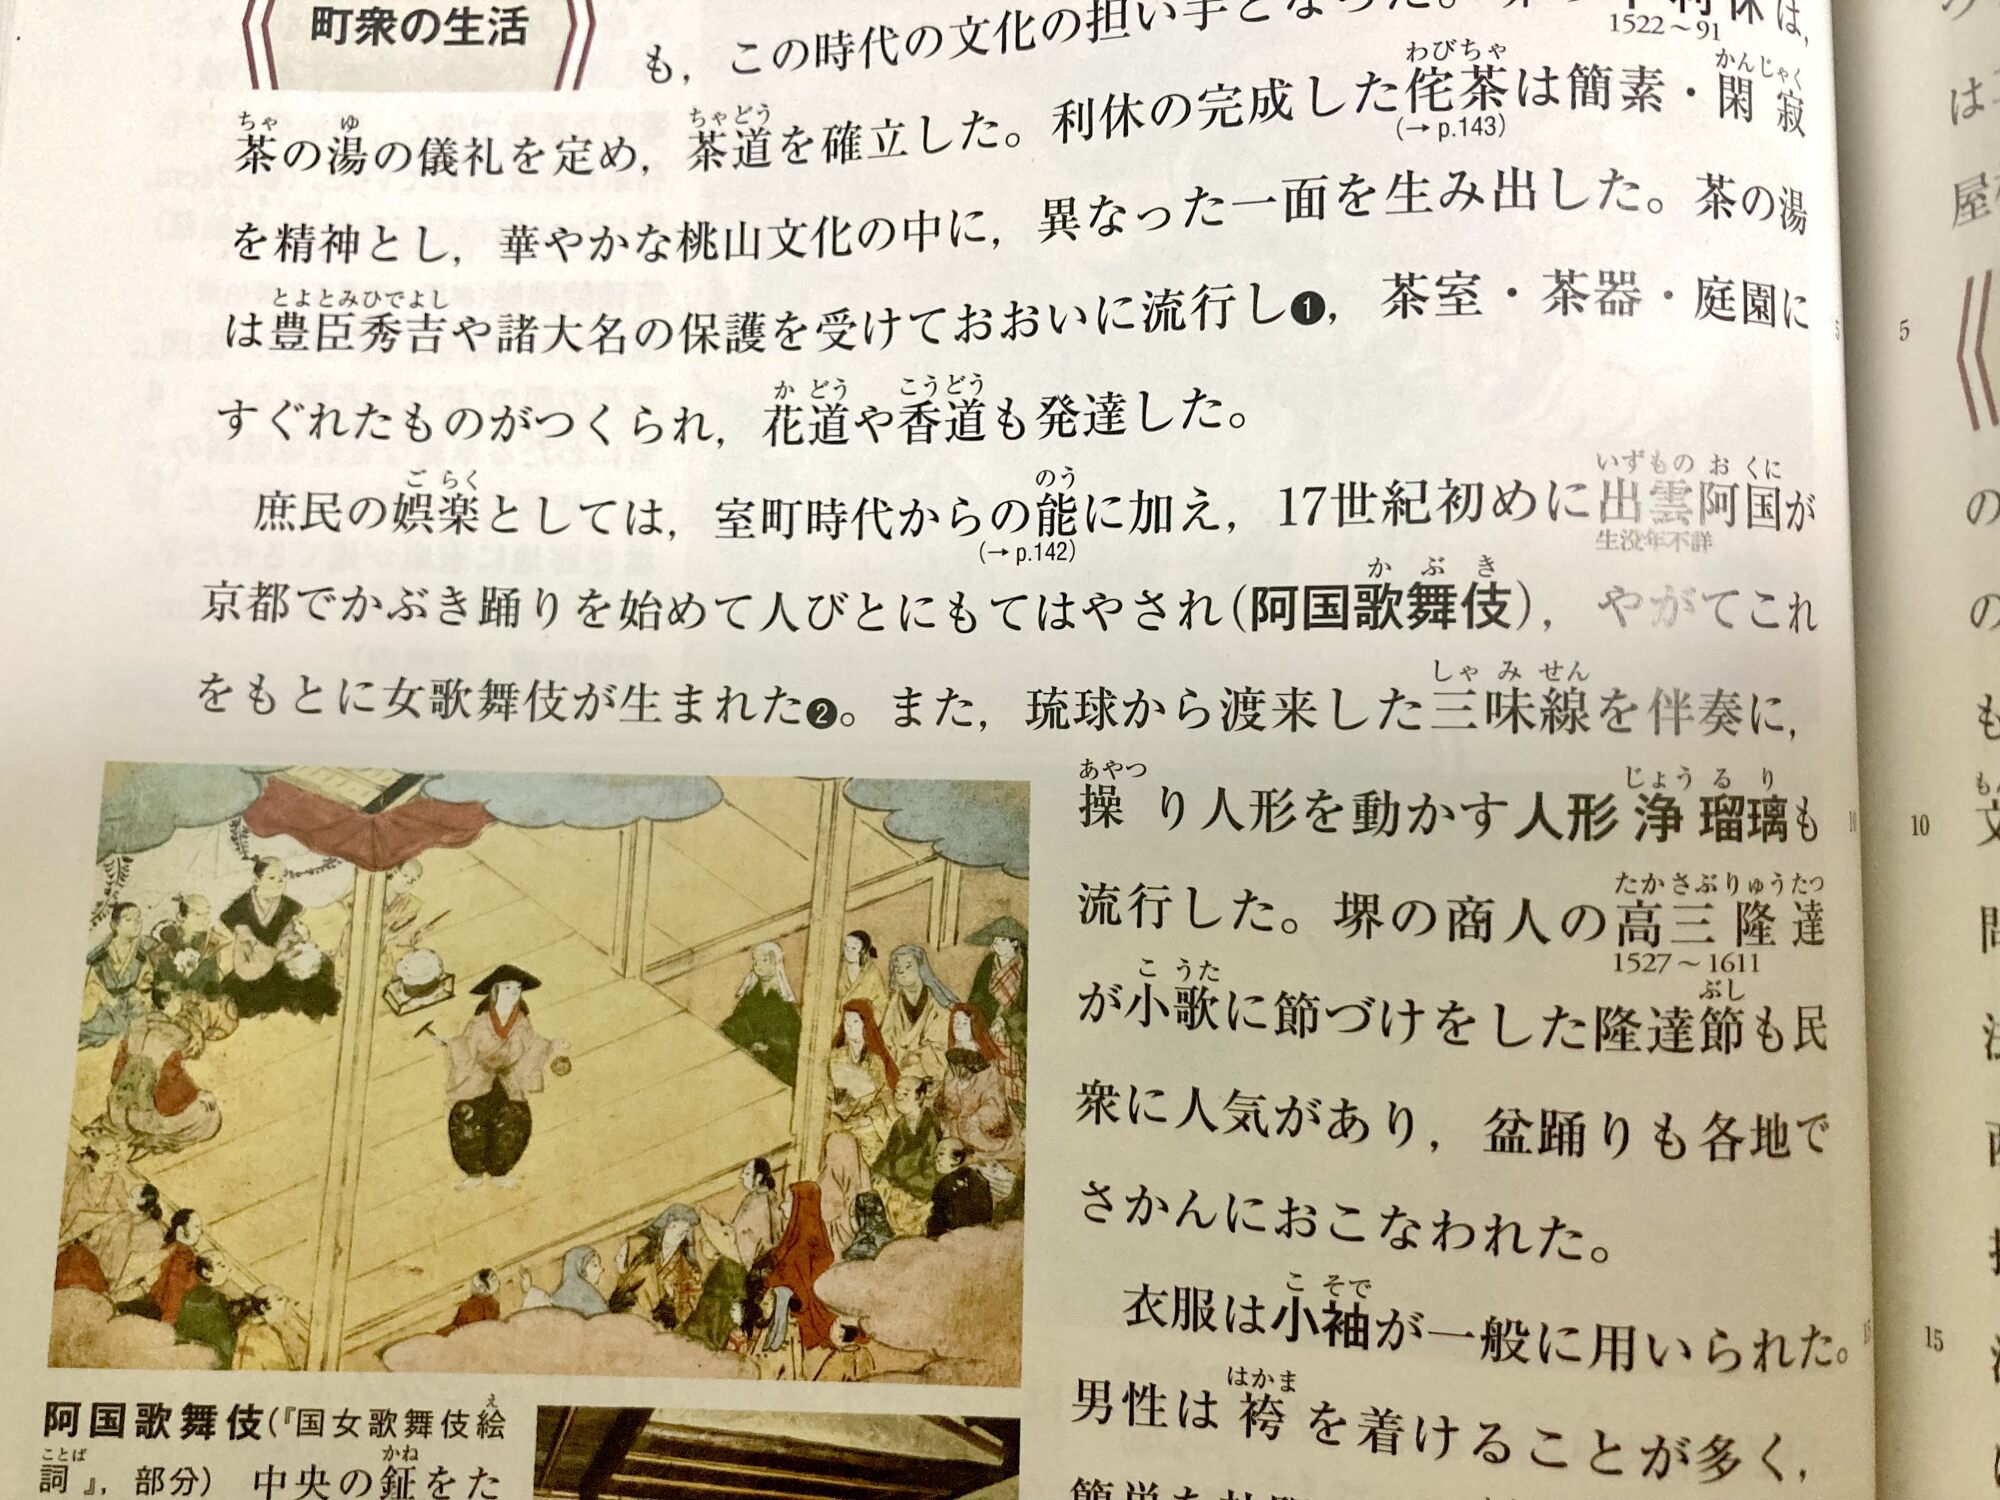 町衆の生活
も，この時代の文化の担い手となった。
1522～91
茶の湯の儀礼を定め，茶道を確立した。利休の完成した侘茶は簡素・閑寂
(→p.143)
を精神とし，華やかな桃山文化の中に，異なった一面を生み出した。茶の湯
は豊臣秀吉や諸大名の保護を受けておおいに流行し❶，茶室・茶器・庭園に
すぐれたものがつくられ，花道や香道も発達した。
庶民の娯楽としては，室町時代からの能に加え，17世紀初めに出雲阿国が
(→p.142)
生没年不詳
京都でかぶき踊りを始めて人びとにもてはやされ(阿国歌舞伎)，やがてこれ
をもとに女歌舞伎が生まれた❷。また，琉球から渡来した三味線を伴奏に，
操り人形を動かす人形浄瑠璃も
流行した。堺の商人の高三隆達
1527～1611
が小歌に節づけをした隆達節も民
衆に人気があり，盆踊りも各地で
さかんにおこなわれた。
衣服は小袖が一般に用いられた。
男性は袴を着けることが多く，
阿国歌舞伎(『国女歌舞伎絵
詞』，部分) 中央の鉦をた
5
10
15